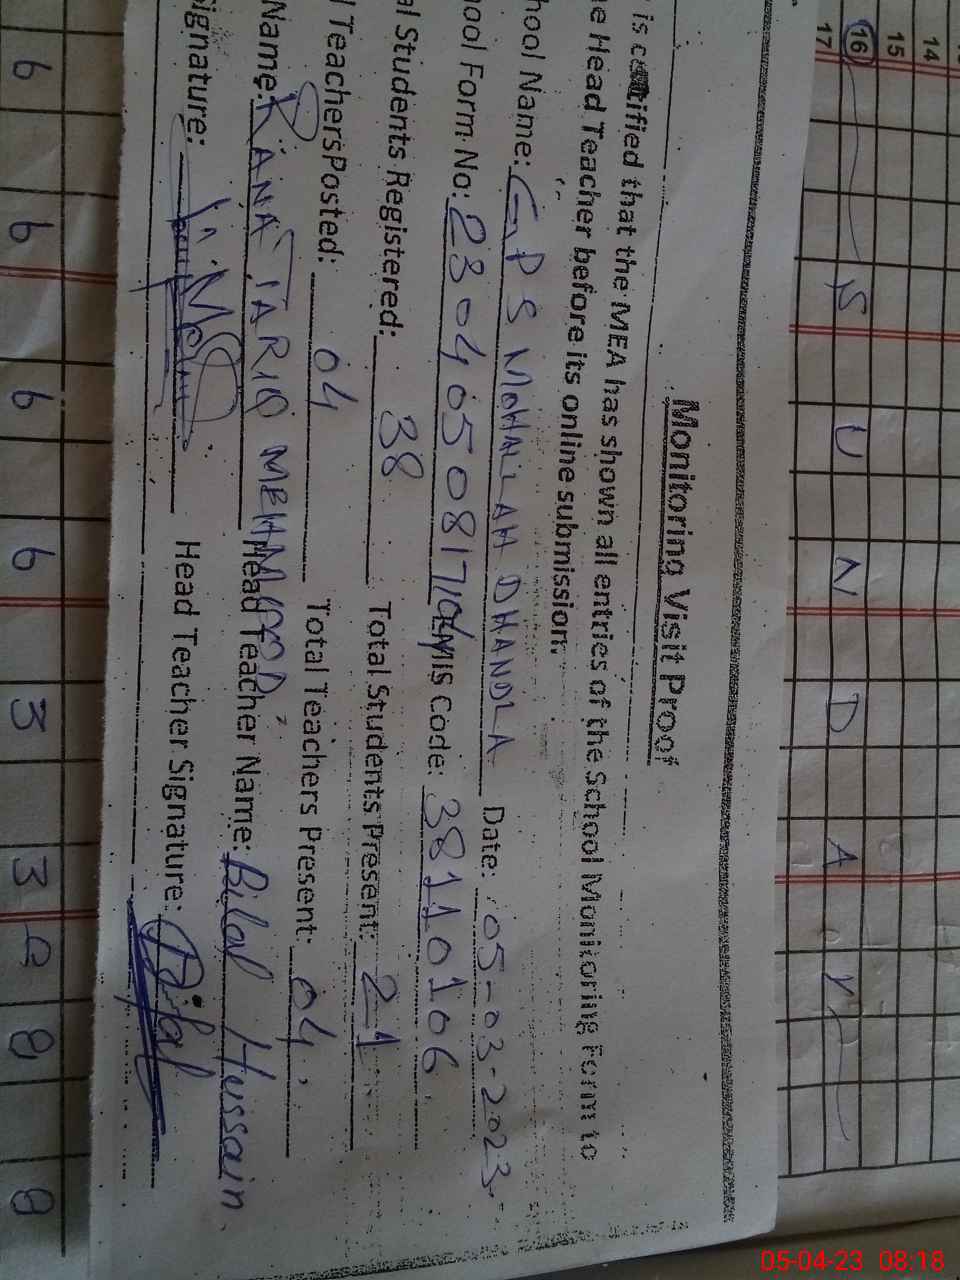 14
15
16
17
S U N D A Y
Monitoring Visit Proof
is certified that the MEA has shown all entries of the School Monitoring Form to
e Head Teacher before its online submission.
hool Name: GPS MOHALLAH DHANDLA Date: 05-03-2023
hool Form No: EMIS Code: 38110106
al Students Registered: 38 Total Students Present: 21
l TeachersPosted: 04 Total Teachers Present: 04
Name: RANA TARIQ MEHMOOD Head Teacher Name: Bilal Hussain
ignature: Head Teacher Signature: Bilal
6 6 6 6 3 3 2 8 8
05-04-23 08:18